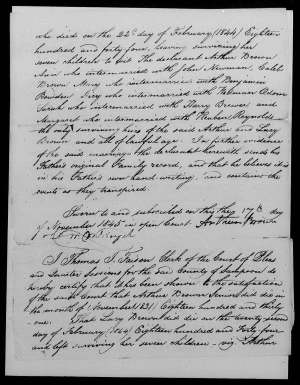 who died on the 22d day of February (1844) Eighteen
hundred and forty four, leaving surviving her
seven children to wit The declarant Arthur Brown
Ann who intermarried with John Newman, Caleb
Brown, Mary who intermarried with Benjamin
who intermarried with
Sarah who intermarried with Henry Brewer and
Margaret who intermarried with Reuben Reynolds
the only surviving heirs of the said Arthur and Lucy
Brown and all of lawful age. In further evidence
of the said marriage the declarant herewith sends his
Father's original Family record, and that he believes it is
in his Father's own hand writing, and contains the
events as they transpired.
Sworn to and subscribed on this the 17th day
of November 1845 in open Court. Arthur Brown
I Thomas J. Clerk of the Court of Pleas
and Quarter Sessions for the County do
hereby certify that it has been shown to the satisfaction
of the said Court that Arthur Brown Senior did die in
the month of November (1831) Eighteen hundred and thirty
one. That Lucy Brown did die on the twenty second
day of February (1844) Eighteen hundred and Forty four
and left surviving her seven children viz. Arthur